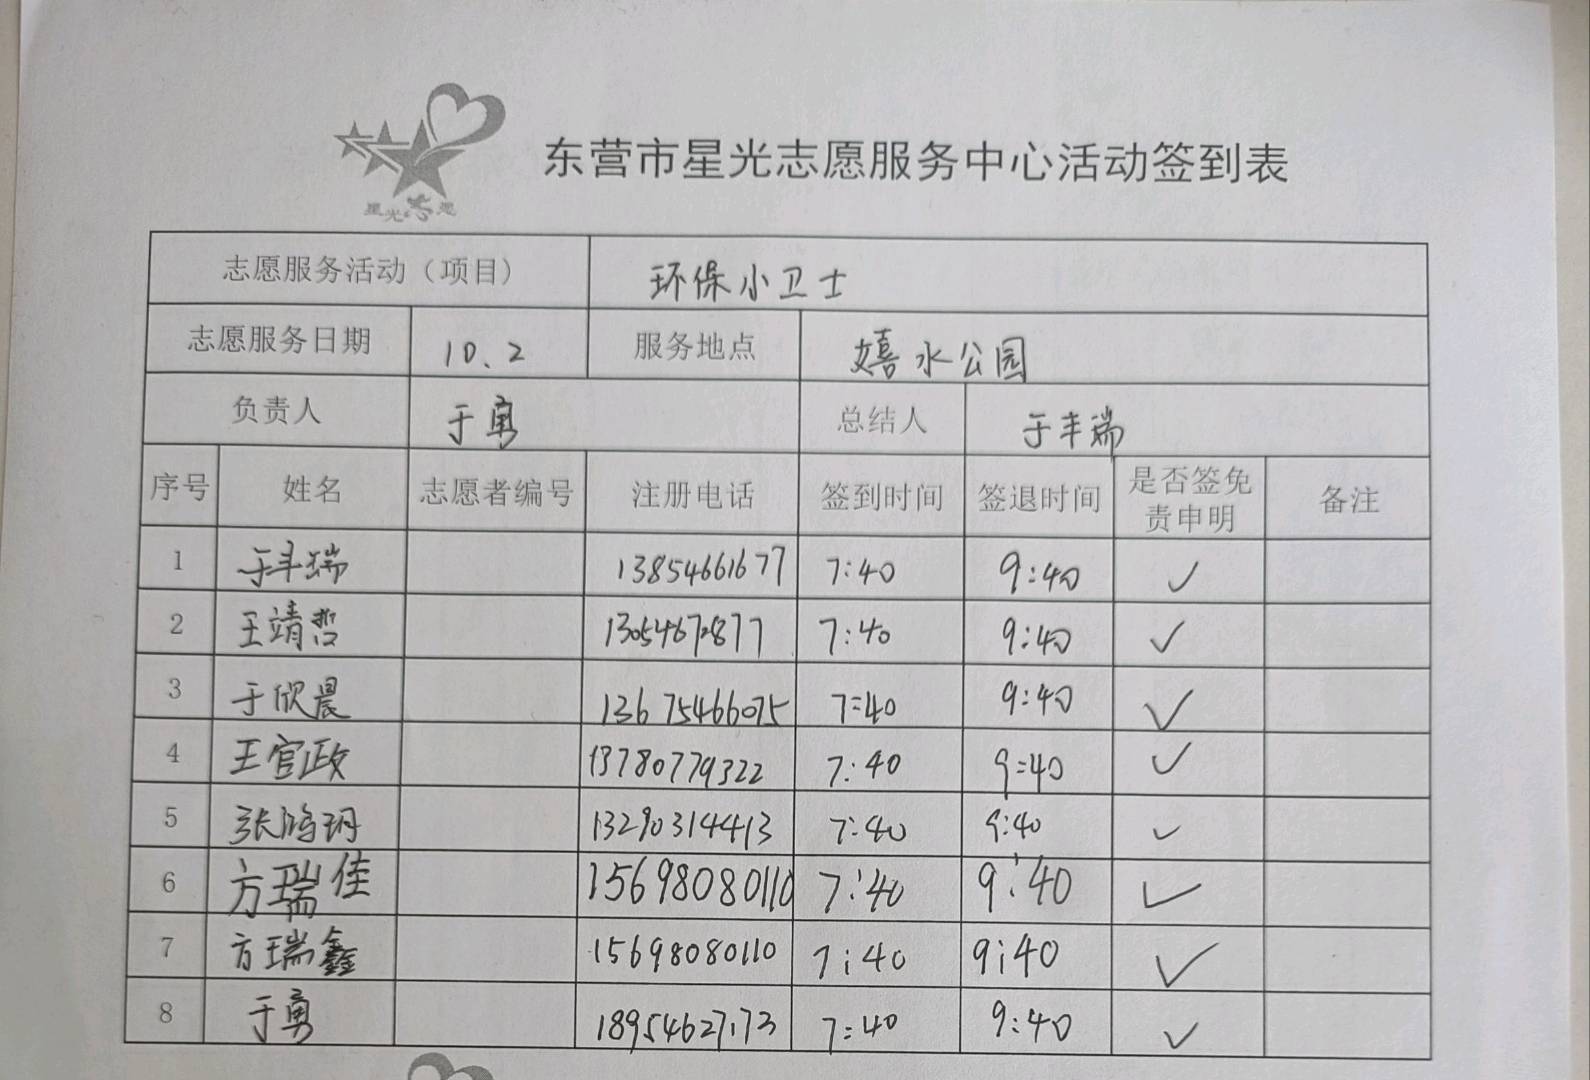 星光志愿
东营市星光志愿服务中心活动签到表
志愿服务活动（项目） 环保小卫士
志愿服务日期 10.2 服务地点 嬉水公园
负责人 于勇 总结人 于丰瑞
序号 姓名 志愿者编号 注册电话 签到时间 签退时间 是否签免责申明 备注
1 于丰瑞 13854661677 7:40 9:40 ✓
2 王靖哲 13054672877 7:40 9:40 ✓
3 于欣晨 13675466075 7:40 9:40 ✓
4 王官政 13780779322 7:40 9:40 ✓
5 张鸿玥 13290314413 7:40 9:40 ✓
6 方瑞佳 15698080110 7:40 9:40 ✓
7 方瑞鑫 15698080110 7:40 9:40 ✓
8 于勇 18954627173 7:40 9:40 ✓